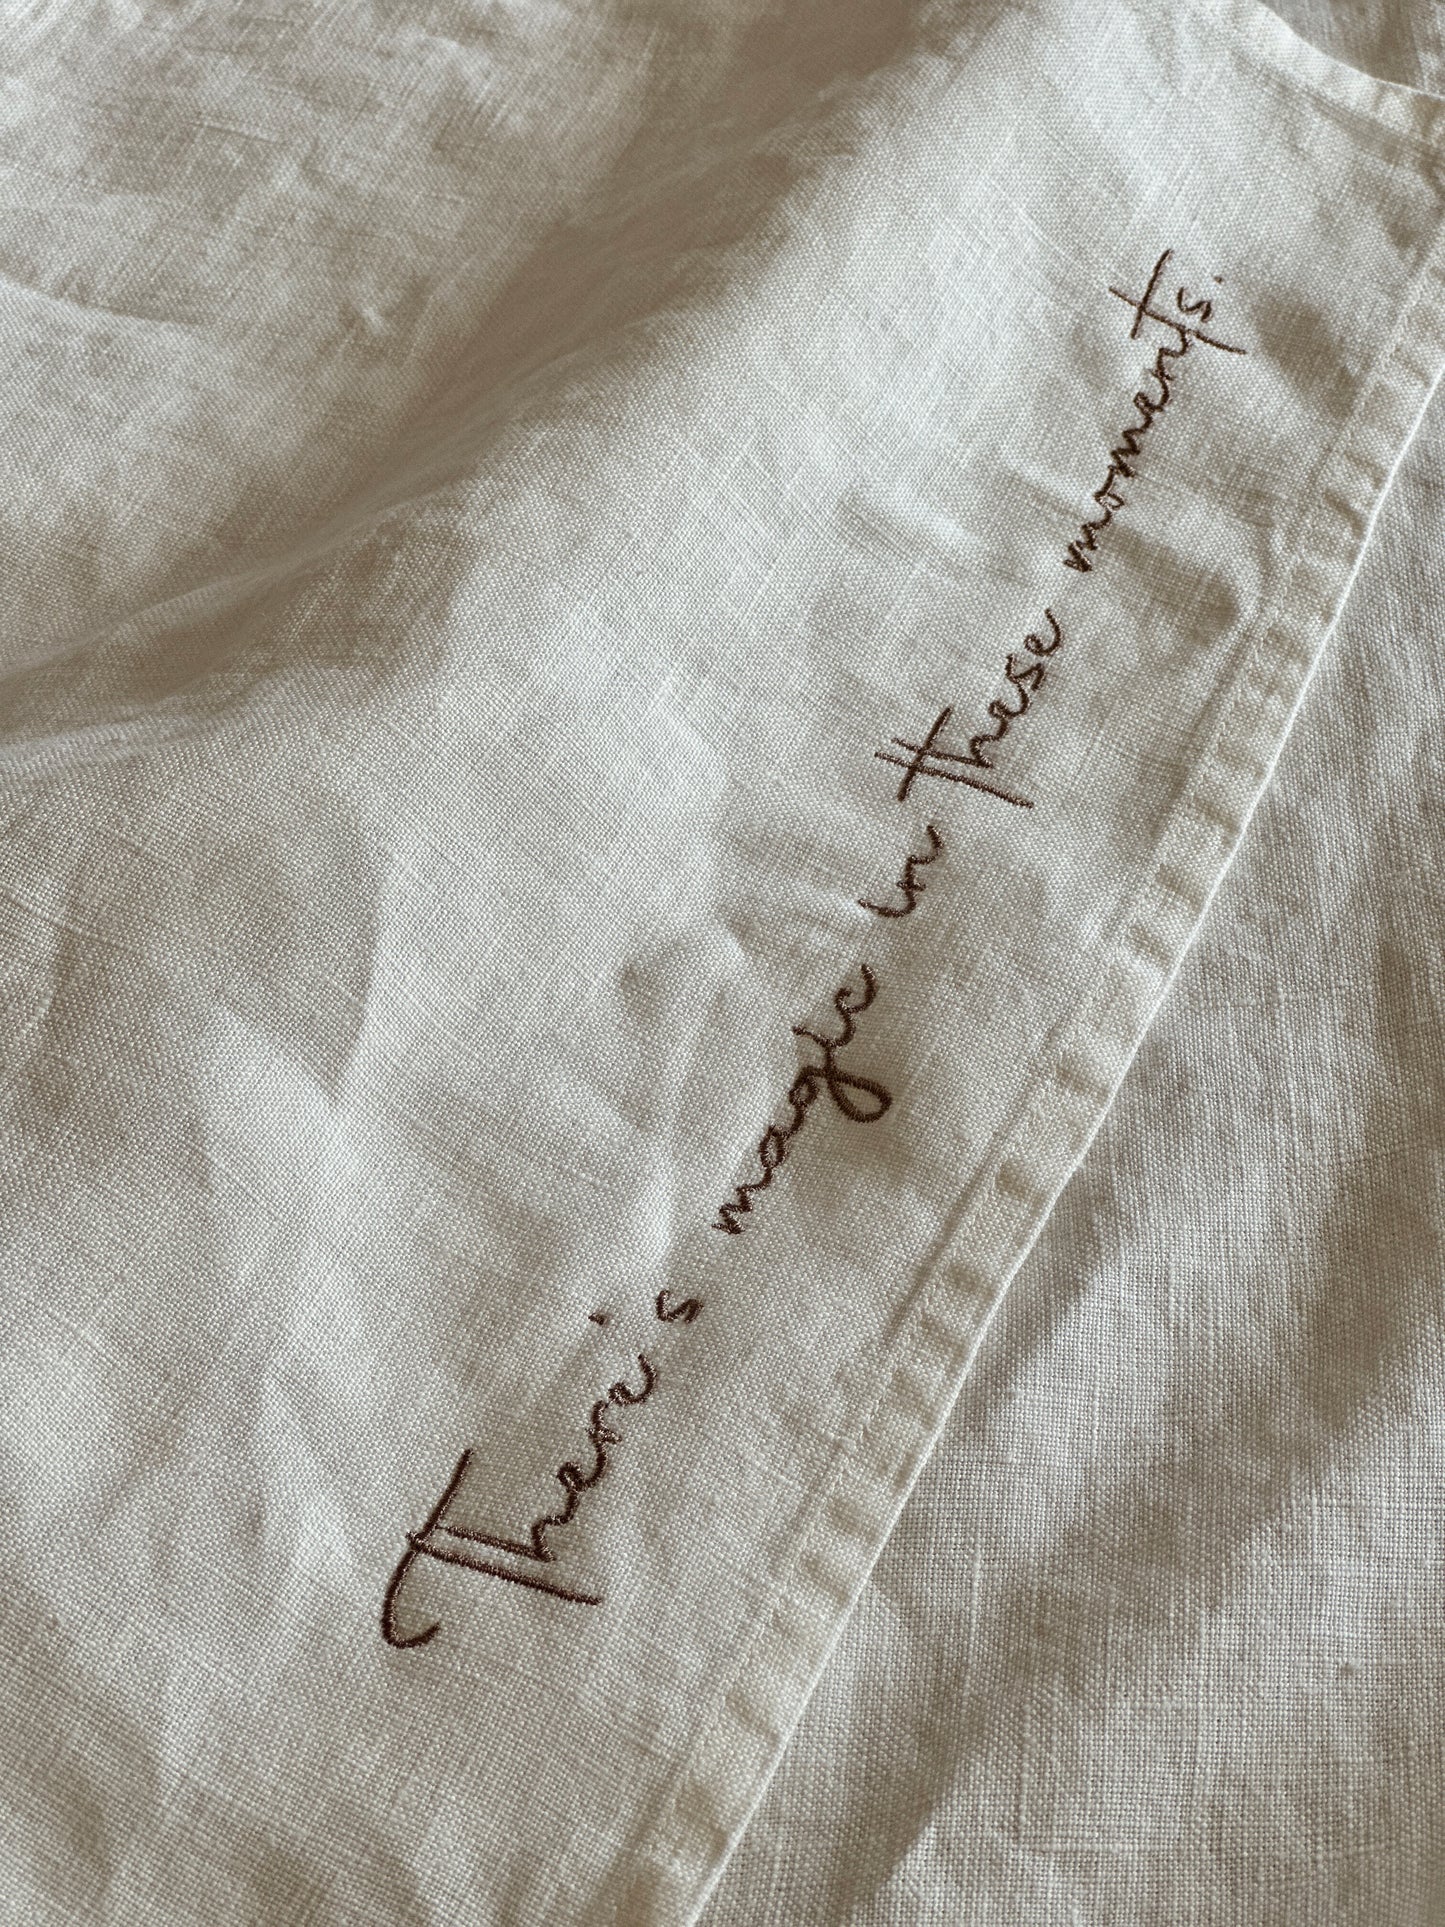 There's magic in these moments.